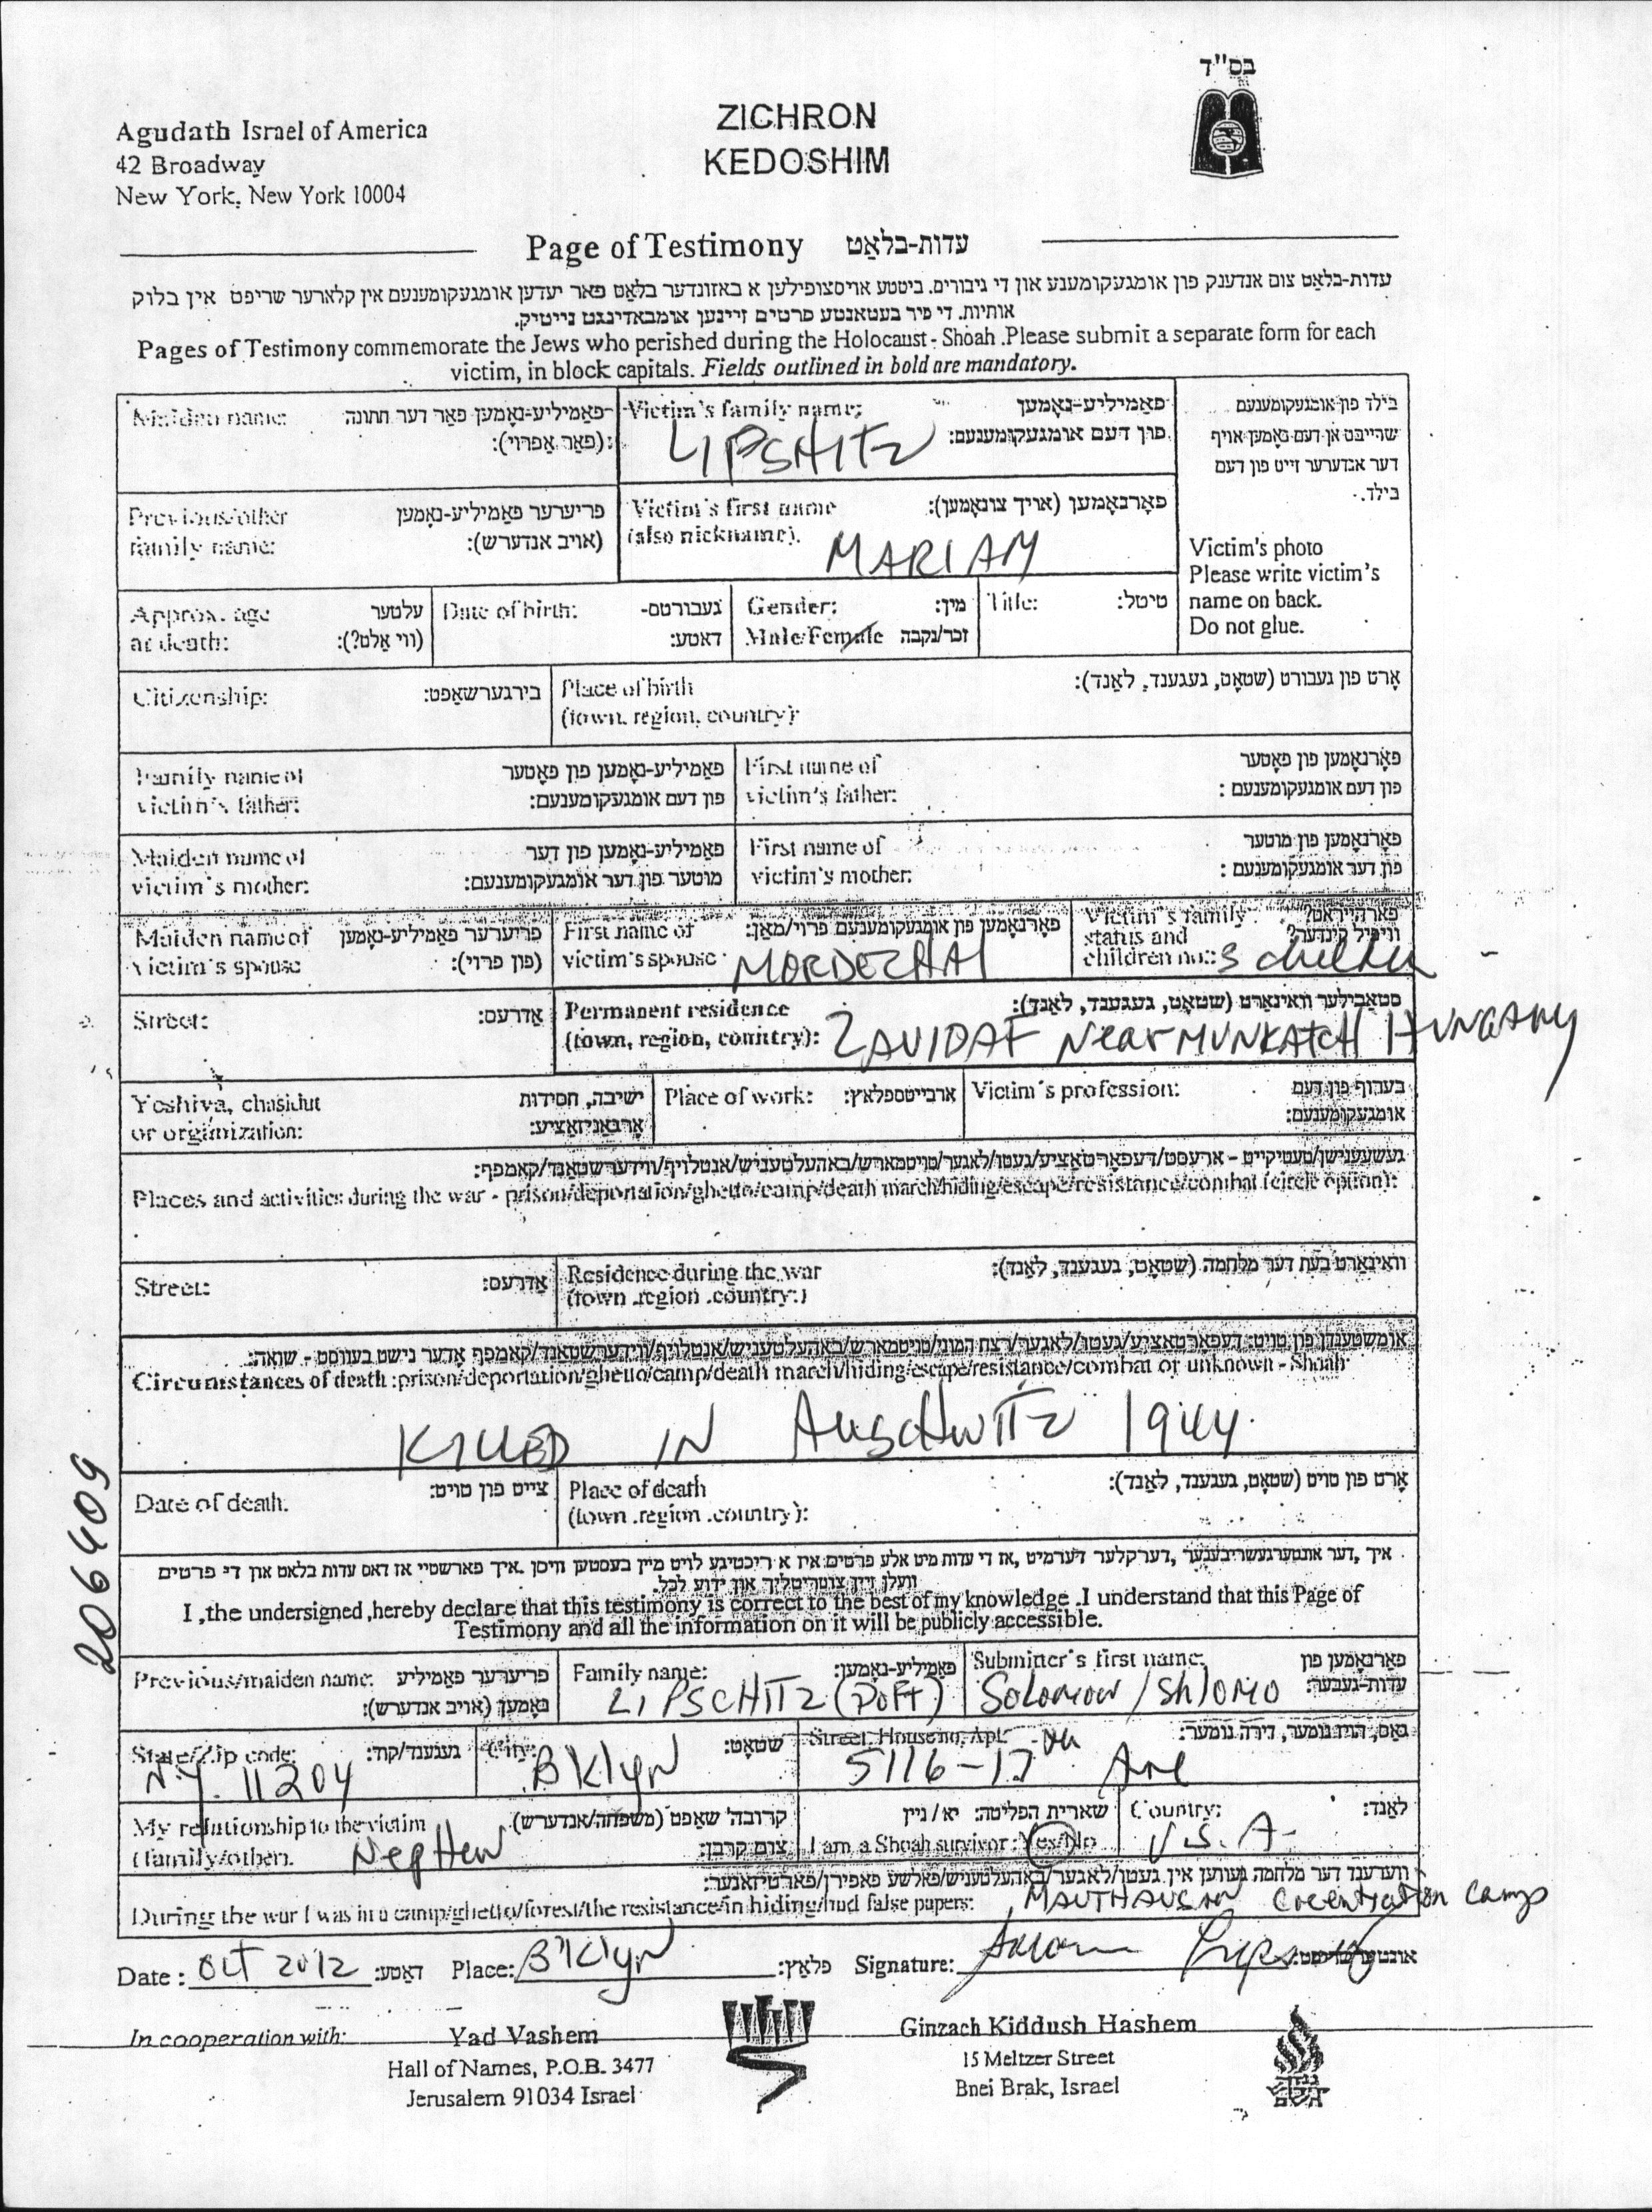 בס"ד
Agudath Israel of America
42 Broadway
New York, New York 10004
ZICHRON
KEDOSHIM
Page of Testimony עדות-בלאַט
עדות-בלאַט צום אנדענק פון אומגעקומענע און די גיבורים. ביטע אויסצופילען א באזונדער בלאַט פאר יעדען אומגעקומענעם אין קלארער שריפט אין בלוק
אותיות. די פיר בעטאנטע פרטים זיינען אומבאדינגט נייטיק.
Pages of Testimony commemorate the Jews who perished during the Holocaust - Shoah .Please submit a separate form for each
victim, in block capitals. Fields outlined in bold are mandatory.
Maiden name: פאַמיליע-נאָמען פאַר דער חתונה
(פאַר אַפרוי):
Victim's family name: פאַמיליע-נאָמען
פון דעם אומגעקומענעם:
LIPSHITZ
בילד פון אומגעקומענעם
שרייבט אן דעם נאָמען אויף
דער אנדערער זייט פון דעם
בילד.
Victim's photo
Please write victim's
name on back.
Do not glue.
Previous/other פריערער פאַמיליע-נאָמען
family name: (אויב אנדערש):
Victim's first name פאָרנאָמען (אויך צונאָמען):
(also nickname).
MARIAM
Approx. age עלטער
at death: (ווי אַלט?):
Date of birth: געבורטס-
דאַטע:
Gender: מין:
Male/Female זכר/נקבה
Title: טיטל:
Citizenship: בירגערשאַפט:
Place of birth אָרט פון געבורט (שטאָט, געגענד, לאַנד):
(town, region, country):
Family name of פאַמיליע-נאָמען פון פאָטער
victim's father: פון דעם אומגעקומענעם:
First name of פאָרנאָמען פון פאָטער
victim's father: פון דעם אומגעקומענעם :
Maiden name of פאַמיליע-נאָמען פון דער
victim's mother: מוטער פון דער אומגעקומענעם:
First name of פאָרנאָמען פון מוטער
victim's mother: פון דער אומגעקומענעם :
Maiden name of פריערער פאַמיליע-נאָמען
victim's spouse (פון פרוי):
First name of פאָרנאָמען פון אומגעקומענעם פרוי/מאַן:
victim's spouse MORDECHAI
Victim's family פאַרהייראַט?
status and וויפיל קינדער?
children no.: 5 children
Street: אַדרעס:
Permanent residence סטאַבילער וואוינאָרט (שטאָט, געגענד, לאַנד):
(town, region, country): ZAVIDAF Near MUNKATCH HUNGARY
Yeshiva, chasidut ישיבה, חסידות
or organization: אָרגאַניזאַציע:
Place of work: ארבייטספלאַץ:
Victim's profession: בערוף פון דעם
אומגעקומענעם:
געשעענישן/טעטיקייט - ארעסט/דעפּאָרטאַציע/געטו/לאַגער/טויטמארש/באַהעלטעניש/אנטלויף/ווידערשטאַנד/קאמפף:
Places and activities during the war - prison/deportation/ghetto/camp/death march/hiding/escape/resistance/combat (circle option):
Street: אַדרעס:
Residence during the war וואוינאָרט בעת דער מלחמה (שטאָט, געגענד, לאַנד):
(town .region .country:)
אומשטענדן פון טויט: דעפּאָרטאַציע/געטו/לאַגער/רצח המוני/טויטמארש/באַהעלטעניש/אנטלויף/ווידערשטאַנד/קאמפף אָדער נישט בעוווסט - שואה:
Circumstances of death :prison/deportation/ghetto/camp/death march/hiding/escape/resistance/combat or unknown - Shoah
KILLED IN AUSCHWITZ 1944
Date of death. צייט פון טויט:
Place of death אָרט פון טויט (שטאָט, געגענד, לאַנד):
(town .region .country ):
איך ,דער אונטערגעשריבענער ,דערקלער דערמיט ,אז די עדות מיט אלע פרטים איז א ריכטיגע לויט מיין בעסטען וויסן .איך פארשטיי אז דאס עדות בלאט און די פרטים
וועלן זיין צוטריטליך און ידוע לכל.
I ,the undersigned ,hereby declare that this testimony is correct to the best of my knowledge .I understand that this Page of
Testimony and all the information on it will be publicly accessible.
Previous/maiden name: פריערער פאַמיליע
נאָמען (אויב אנדערש):
Family name: פאַמיליע-נאָמען:
LIPSCHITZ (DOFT)
Submitter's first name: פאָרנאָמען פון
עדות-געבער:
Solomon / Shlomo
State/Zip code: געגענד/קוד:
N.Y. 11204
City: שטאָט:
BKlyN
Street, House no, Apt. גאַס, הויז נומער, דירה נומער:
5116-17 th Ave
My relationship to the victim קרובה' שאַפט (משפחה/אנדערש)
(family/other). Nephew צום קרבן:
שארית הפליטה: יא / ניין
I am a Shoah survivor : Yes/No
Country: לאַנד:
U.S.A-
ווערענד דער מלחמה געווען אין געטו/לאַגער/באַהעלטעניש/פאלשע פאפירן/פארטיזאנער:
During the war I was in a camp/ghetto/forest/the resistance/in hiding/had false papers: MAUTHAUSAN Cocentration Camp
Date : Oct 2012 דאַטע: Place: B'klyN פלאַץ: Signature: אונטערשריפט:
In cooperation with:
Yad Vashem
Hall of Names, P.O.B. 3477
Jerusalem 91034 Israel
Ginzach Kiddush Hashem
15 Meltzer Street
Bnei Brak, Israel
206409